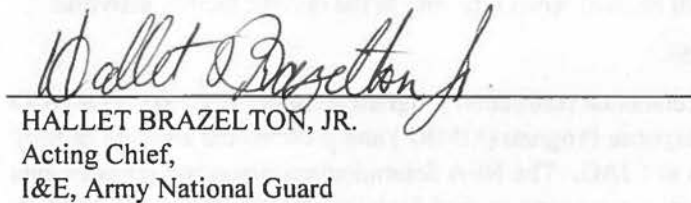 Hallet Q Brazelton Jr.
HALLET BRAZELTON, JR.
Acting Chief,
I&E, Army National Guard